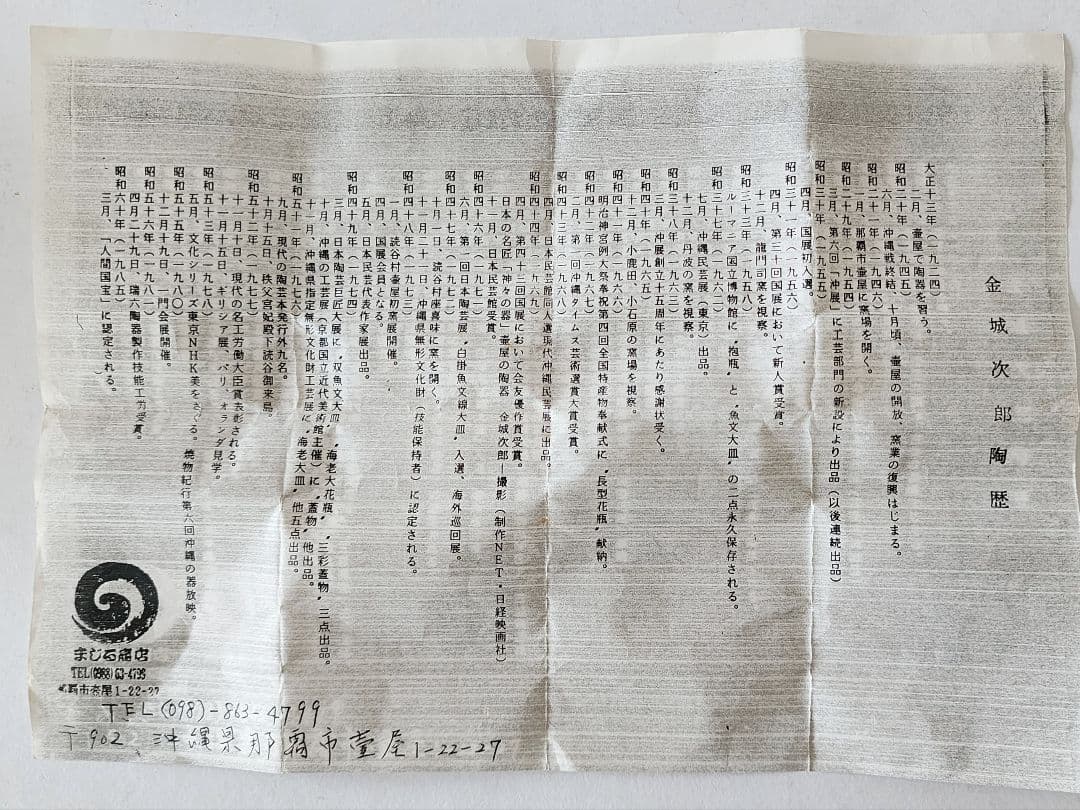 金城次郎陶歴
大正十三年(一九二四)
二月、壷屋で陶器を習う。
昭和二十年(一九四五)
六月、沖縄戦終結、十月頃、壷屋の開放、窯業の復興はじまる。
昭和二十一年(一九四六)
一月、那覇市壷屋に窯場を開く。
昭和二十九年(一九五四)
三月、第六回「沖展」に工芸部門の新設により出品(以後連続出品)
昭和三十年(一九五五)
四月、国展初入選。
昭和三十一年(一九五六)
四月、第三十回国展において新人賞受賞。
十二月、龍門司窯を視察。
昭和三十三年(一九五八)
ルーマニア国立博物館に〝抱瓶〟と〝魚文大皿〟の二点永久保存される。
昭和三十七年(一九六二)
七月、沖縄民芸展(東京)出品。
十二月、丹波の窯を視察。
昭和三十八年(一九六三)
三月、沖展創立十五周年にあたり感謝状受く。
昭和四十年(一九六五)
十二月、小鹿田、小石原の窯場を視察。
昭和四十二年(一九六七)
明治神宮例大祭奉祝第四回全国特産物奉献式に〝長型花瓶〟献納。
昭和四十三年(一九六八)
二月、第二回沖縄タイムス芸術選賞大賞受賞。
四月、日本民芸館同人選現代沖縄民芸展に出品。
昭和四十四年(一九六九)
四月、第四十三回国展において会友優作賞受賞。
日本の名匠「神々の器」壷屋の陶器 金城次郎―撮影(制作NET・日経映画社)
昭和四十六年(一九七一)
十一月、日本民芸館賞受賞。
昭和四十七年(一九七二)
六月、第一回日本陶芸展〝白掛魚文線大皿〟入選、海外巡回展。
十一月二十一日、沖縄県無形文化財(技能保持者)に認定される。
昭和四十八年(一九七三)
一月、読谷村壷屋初窯展開催。
四月、国展会員となる。
五月、日本民芸代表作家展出品。
昭和四十九年(一九七四)
三月、日本陶芸巨匠大展に〝双魚文大皿〟〝海老大花瓶〟〝三彩蓋物〟三点出品。
十月、沖縄の工芸展(京都国立近代美術館主催)に〝蓋物〟他出品。
十一月、沖縄県指定無形文化財工芸展に〝海老大皿〟他五点出品。
昭和五十一年(一九七六)
九月、現代の陶芸本発行外九名。
十月十五日、秩父宮妃殿下読谷御来島。
昭和五十二年(一九七七)
十一月十日、現代の名工労働大臣賞表彰される。
十一月十五日、ギリシア展、パリ、オランダ見学。
昭和五十三年(一九七八)
五月、文化シリーズ東京NHK美をさぐる。焼物紀行第六回沖縄の器放映。
昭和五十五年(一九八〇)
十二月十九日、一門会展開催。
昭和五十六年(一九八一)
四月二十九日、瑞六陶器製作技能工労受賞。
昭和六十年(一九八五)
三月、「人間国宝」に認定される。
まじる商店
TEL(0988)63-4799
那覇市壺屋1-22-27
TEL(098)-863-4799
〒902、沖縄県那覇市壺屋1-22-27